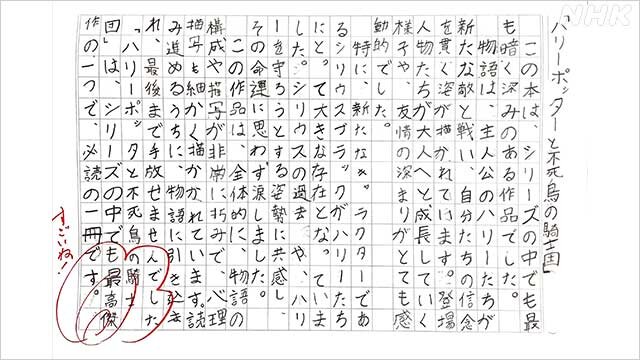 NHK
「ハリーポッターと不死鳥の騎士団」
この本は、シリーズの中でも最
も暗く深みのある作品でした。
物語は、主人公のハリーたちが
新たな敵と戦い、自分たちの信念
を貫く姿が描かれています。登場
人物たちが大人へと成長していく
様子や、友情の深まりがとても感
動的でした。
特に、新たなキャラクターであ
るシリウスブラックがハリーたち
にとって大きな存在となっていま
した。シリウスの過去や、ハリ
ーを守ろうとする姿勢に共感し
その命運に思わず涙しました。
この作品は、全体的に、物語の
構成や描写が非常に巧みで、心理
描写も細かく描かれています。読
み進めるうちに、物語に引き込ま
れ、最後まで手放せませんでした
「ハリーポッターと不死鳥の騎士
団」は、シリーズの中でも最高傑
作の一つで、必読の一冊です。
すごいね！